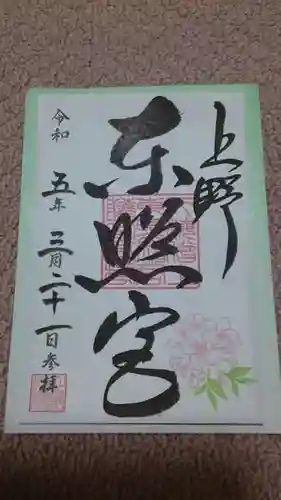 上野
東照宮
令和五年三月二十一日参拝